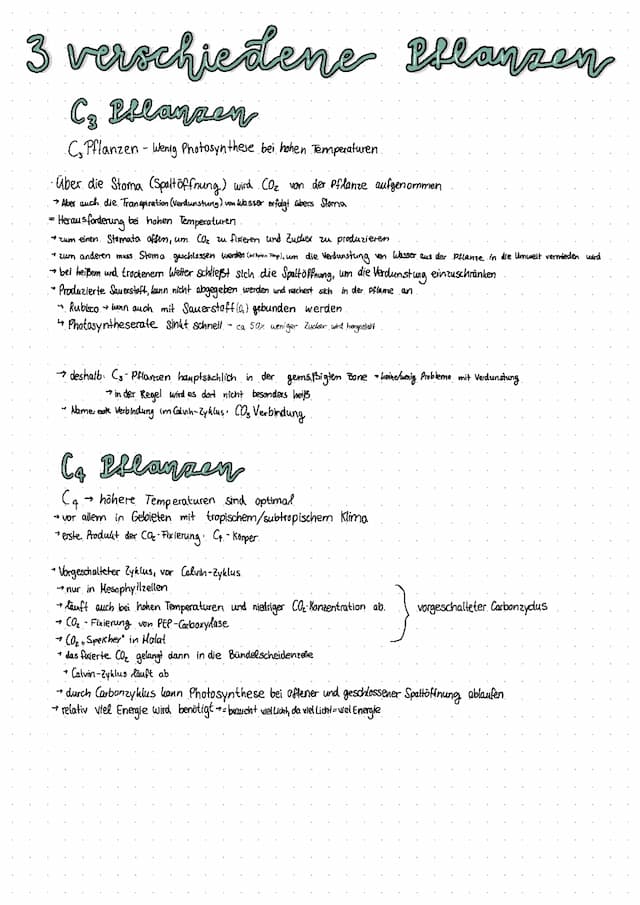 3 verschiedene Pflanzen
C3 Pflanzen
C3 Pflanzen - Wenig Photosynthese bei hohen Temperaturen
·Über die Stoma (Spaltöffnung) wird CO2 von der Pflanze aufgenommen
→ Aber auch die Transpiration (Verdunstung) von Wasser erfolgt übers Stoma
= Herausforderung bei hohen Temperaturen
→ zum einen Stomata offen, um CO2 zu fixieren und Zucker zu produzieren
→ zum anderen muss Stoma geschlossen werden, um die Verdunstung von Wasser aus der Pflanze in die Umwelt vermieden wird
→ bei heißem und trockenem Wetter schließt sich die Spaltöffnung, um die Verdunstung einzuschränken
→ Produzierte Sauerstoff, kann nicht abgegeben werden und reichert sich in der Pflanze an
→ Rubisco → kann auch mit Sauerstoff (O2) gebunden werden
↳ Photosyntheserate sinkt schnell - ca 50% weniger Zucker wird hergestellt
→ deshalb: C3-Pflanzen hauptsächlich in der gemäßigten Zone → keine/wenig Probleme mit Verdunstung
→ in der Regel wird es dort nicht besonders heiß
→ Name: erste Verbindung im Calvin-Zyklus: CO3 Verbindung
C4 Pflanzen
C4 → höhere Temperaturen sind optimal
→ vor allem in Gebieten mit tropischem/subtropischem Klima
→ erste Produkt der CO2-Fixierung: C4-Körper
→ Vorgeschalteter Zyklus, vor Calvin-Zyklus
→ nur in Mesophyllzellen
→ läuft auch bei hohen Temperaturen und niedriger CO2-Konzentration ab.
vorgeschalteter Carbonzyclus
→ CO2-Fixierung von PEP-Carboxylase
→ CO2 „Speicher" in Malat
→ das fixierte CO2 gelangt dann in die Bündelscheidenzelle
→ Calvin-Zyklus läuft ab
→ durch Carbonzyklus kann Photosynthese bei offener und geschlossener Spaltöffnung ablaufen
→ relativ viel Energie wird benötigt → = braucht viel Licht, da viel Licht = viel Energie